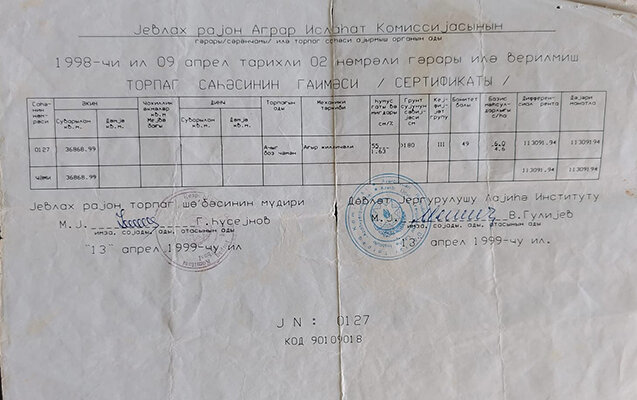 Јевлах рајон Аграр Ислаһат Комиссијасынын
гәрары/сәрәнҹамы/ илә торпаг саһәси ајырмыш органын ады
1998-чи ил 09 апрел тарихли 02 нөмрәли гәрары илә верилмиш
ТОРПАГ САҺӘСИНИН ГАИМӘСИ / СЕРТИФИКАТЫ /
Саһәнин нөмрәси | Әкин | Чохиллик әкмәләр кв.м | динҹ | Торпағын ады | Механики тәркиби | Һумус гаты вә мигдары см/% | Грунт сујунун сәвијјәси см | Кејфијјәт групу | Бонитет балы | Базис мәһсулдарлығы с/һа | Дифференсиал рента | Дәјәри манатла
Суварылан кв.м. | Дәмјә кв.м. | Мејвә бағы | Суварылан кв.м. | Дәмјә кв.м.
0127 | 36868.99 | Ачыг боз чәмән | Ағыр килличәли | 55 1.63 | 0180 | III | 49 | 6.0 4.6 | 113091.94 | 113091.94
Ҹәми | 36868.99 | 113091.94 | 113091.94
Јевлах рајон торпаг шө'бәсинин мүдири
М.Ј. Г.Һусејнов
имза, сојады, ады, атасынын ады
"13" апрел 1999-чу ил
Дөвләт Јергурулушу Лајиһә Институту
М.Ј. В.Гулијев
имза, сојады, ады, атасынын ады
"13" апрел 1999-чу ил.
Ј N : 0127
КОД 90109018